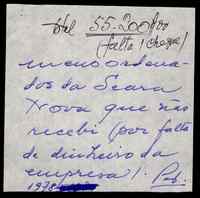 Tel 55-200$00
(falta 1 cheque)
meus ordena-
dos da Seara
Nova que não
recebi (por falta
de dinheiro da
empresa).
1978